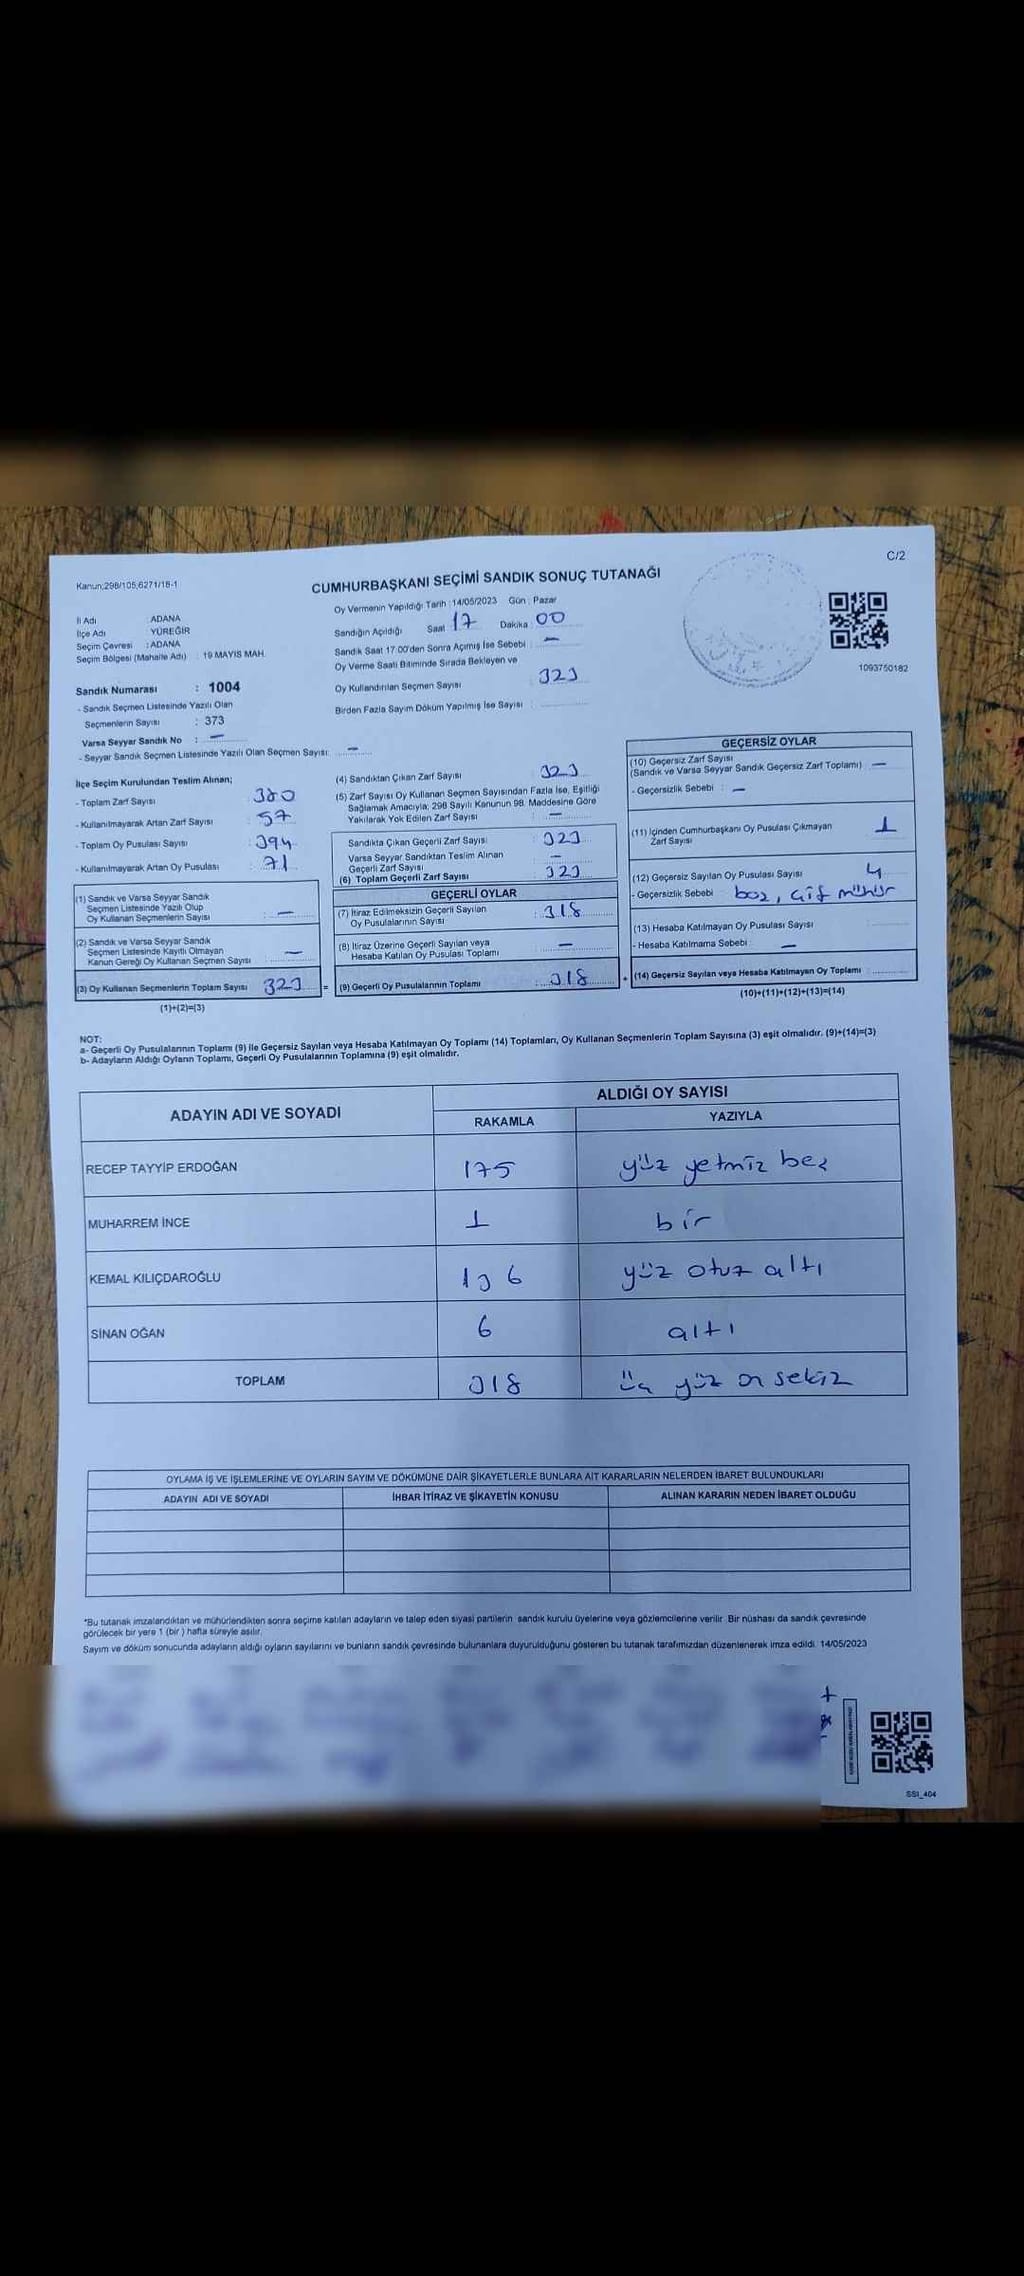 C/2
Kanun:298/105,6271/18-1
CUMHURBAŞKANI SEÇİMİ SANDIK SONUÇ TUTANAĞI
İl Adı : ADANA
İlçe Adı : YÜREĞİR
Seçim Çevresi : ADANA
Seçim Bölgesi (Mahalle Adı) : 19 MAYIS MAH.
Oy Vermenin Yapıldığı Tarih : 14/05/2023 Gün : Pazar
Sandığın Açıldığı Saat 17 Dakika 00
Sandık Saat 17.00'den Sonra Açımış İse Sebebi : —
Oy Verme Saati Bitiminde Sırada Bekleyen ve
Oy Kullandırılan Seçmen Sayısı : 323
Birden Fazla Sayım Döküm Yapılmış İse Sayısı :
1093750182
Sandık Numarası : 1004
- Sandık Seçmen Listesinde Yazılı Olan
Seçmenlerin Sayısı : 373
Varsa Seyyar Sandık No : —
- Seyyar Sandık Seçmen Listesinde Yazılı Olan Seçmen Sayısı: —
İlçe Seçim Kurulundan Teslim Alınan;
- Toplam Zarf Sayısı : 380
- Kullanılmayarak Artan Zarf Sayısı : 57
- Toplam Oy Pusulası Sayısı : 394
- Kullanılmayarak Artan Oy Pusulası : 71
(1) Sandık ve Varsa Seyyar Sandık
Seçmen Listesinde Yazılı Olup
Oy Kullanan Seçmenlerin Sayısı : —
(2) Sandık ve Varsa Seyyar Sandık
Seçmen Listesinde Kayıtlı Olmayan
Kanun Gereği Oy Kullanan Seçmen Sayısı : —
(3) Oy Kullanan Seçmenlerin Toplam Sayısı 323
(1)+(2)=(3)
(4) Sandıktan Çıkan Zarf Sayısı : 323
(5) Zarf Sayısı Oy Kullanan Seçmen Sayısından Fazla İse, Eşitliği
Sağlamak Amacıyla; 298 Sayılı Kanunun 98. Maddesine Göre
Yakılarak Yok Edilen Zarf Sayısı : —
Sandıkta Çıkan Geçerli Zarf Sayısı : 323
Varsa Seyyar Sandıktan Teslim Alınan
Geçerli Zarf Sayısı : —
(6) Toplam Geçerli Zarf Sayısı : 323
GEÇERLİ OYLAR
(7) İtiraz Edilmeksizin Geçerli Sayılan
Oy Pusulalarının Sayısı : 318
(8) İtiraz Üzerine Geçerli Sayılan veya
Hesaba Katılan Oy Pusulası Toplamı : —
= (9) Geçerli Oy Pusulalarının Toplamı : 318 +
GEÇERSİZ OYLAR
(10) Geçersiz Zarf Sayısı
(Sandık ve Varsa Seyyar Sandık Geçersiz Zarf Toplamı) : —
- Geçersizlik Sebebi : —
(11) İçinden Cumhurbaşkanı Oy Pusulası Çıkmayan
Zarf Sayısı 1
(12) Geçersiz Sayılan Oy Pusulası Sayısı 4
- Geçersizlik Sebebi : boş, çif mühür
(13) Hesaba Katılmayan Oy Pusulası Sayısı :
- Hesaba Katılmama Sebebi : —
(14) Geçersiz Sayılan veya Hesaba Katılmayan Oy Toplamı :
(10)+(11)+(12)+(13)=(14)
NOT:
a- Geçerli Oy Pusulalarının Toplamı (9) ile Geçersiz Sayılan veya Hesaba Katılmayan Oy Toplamı (14) Toplamları, Oy Kullanan Seçmenlerin Toplam Sayısına (3) eşit olmalıdır. (9)+(14)=(3)
b- Adayların Aldığı Oyların Toplamı, Geçerli Oy Pusulalarının Toplamına (9) eşit olmalıdır.
ADAYIN ADI VE SOYADI
ALDIĞI OY SAYISI
RAKAMLA YAZIYLA
RECEP TAYYİP ERDOĞAN 175 yüz yetmiş beş
MUHARREM İNCE 1 bir
KEMAL KILIÇDAROĞLU 136 yüz otuz altı
SİNAN OĞAN 6 altı
TOPLAM 318 üç yüz on sekiz
OYLAMA İŞ VE İŞLEMLERİNE VE OYLARIN SAYIM VE DÖKÜMÜNE DAİR ŞİKAYETLERLE BUNLARA AİT KARARLARIN NELERDEN İBARET BULUNDUKLARI
ADAYIN ADI VE SOYADI İHBAR İTİRAZ VE ŞİKAYETİN KONUSU ALINAN KARARIN NEDEN İBARET OLDUĞU
*Bu tutanak imzalandıktan ve mühürlendikten sonra seçime katılan adayların ve talep eden siyasi partilerin sandık kurulu üyelerine veya gözlemcilerine verilir. Bir nüshası da sandık çevresinde
görülecek bir yere 1 (bir ) hafta süreyle asılır.
Sayım ve döküm sonucunda adayların aldığı oyların sayılarını ve bunların sandık çevresinde bulunanlara duyurulduğunu gösteren bu tutanak tarafımızdan düzenlenerek imza edildi. 14/05/2023
SSİ_404